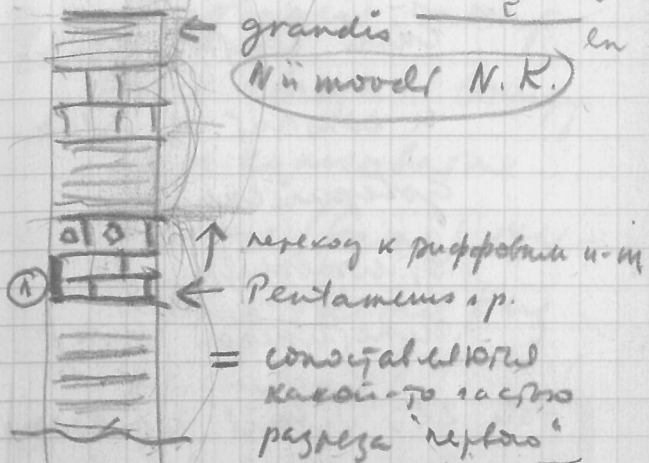 grandis
en
Nii moodi N. K.
переход к риффовым и-м
Pentamerus sp.
①
= сопоставляются
какой-то частью
разреза "первого"